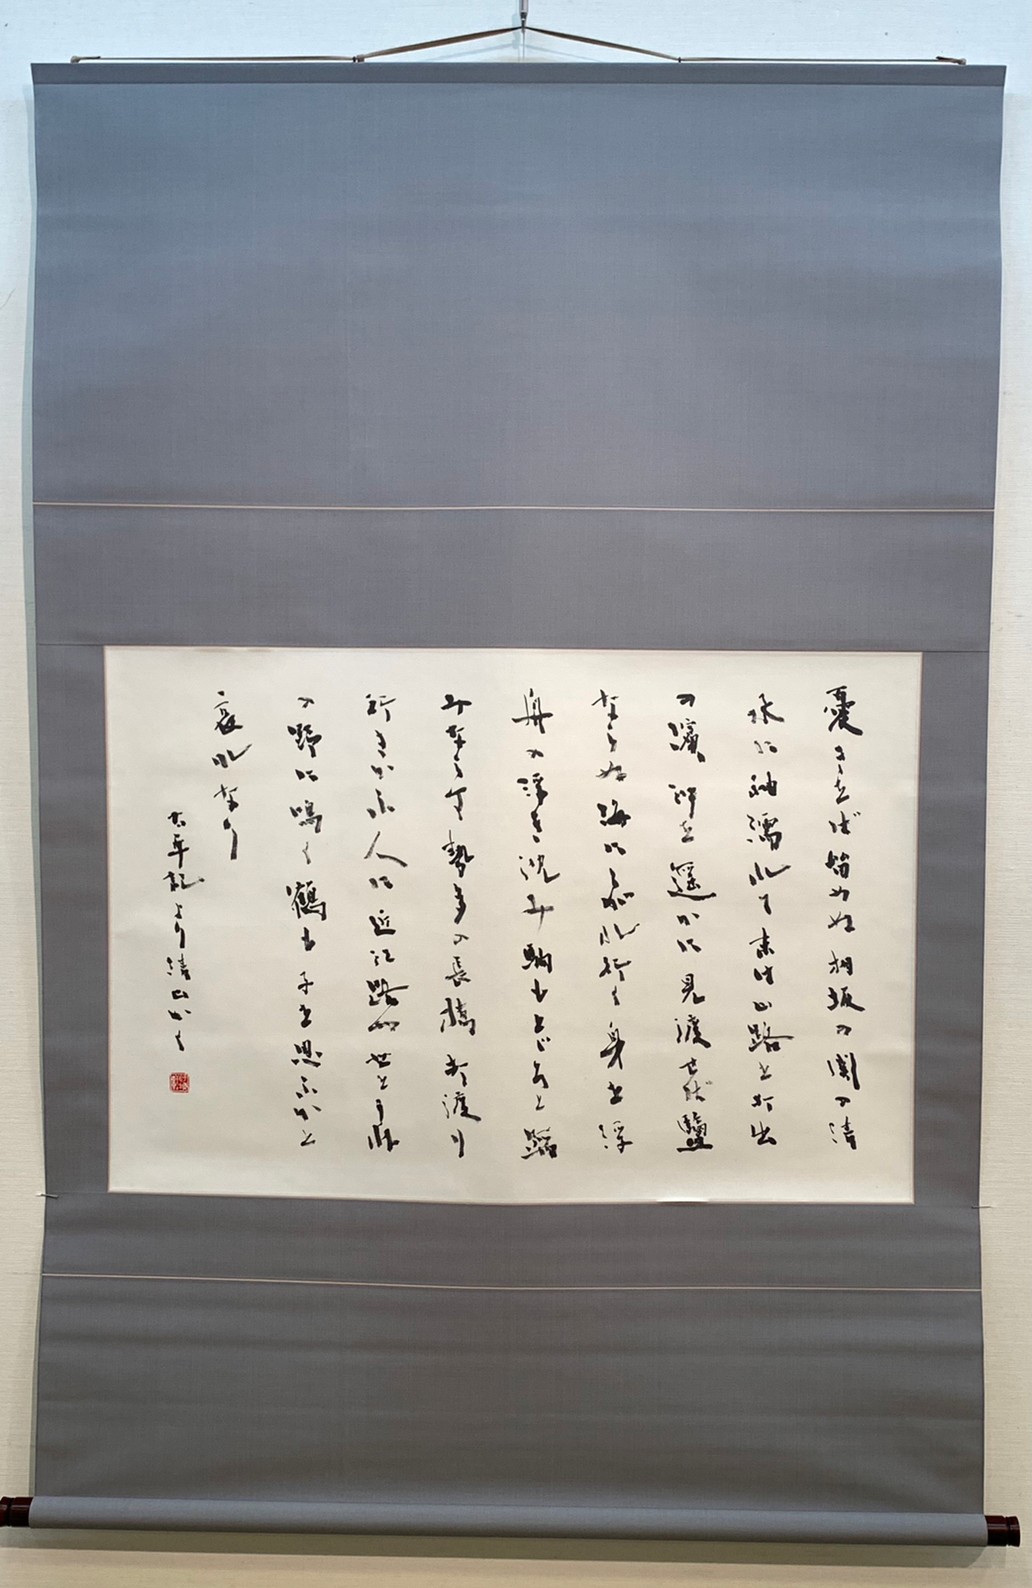 憂きをば留めぬ相坂の関の清
水に袖濡れて末は山路を打出
の濱沖を遥かに見渡せば鹽
ならぬ海にこがれ行く身を浮
舟の浮き沈み駒もとゞろと踏
みならす勢多の長橋打渡り
行きかふ人に近江路や世をうね
の野に鳴く鶴も子を思ふかと
哀れなり
太平記より清山かく